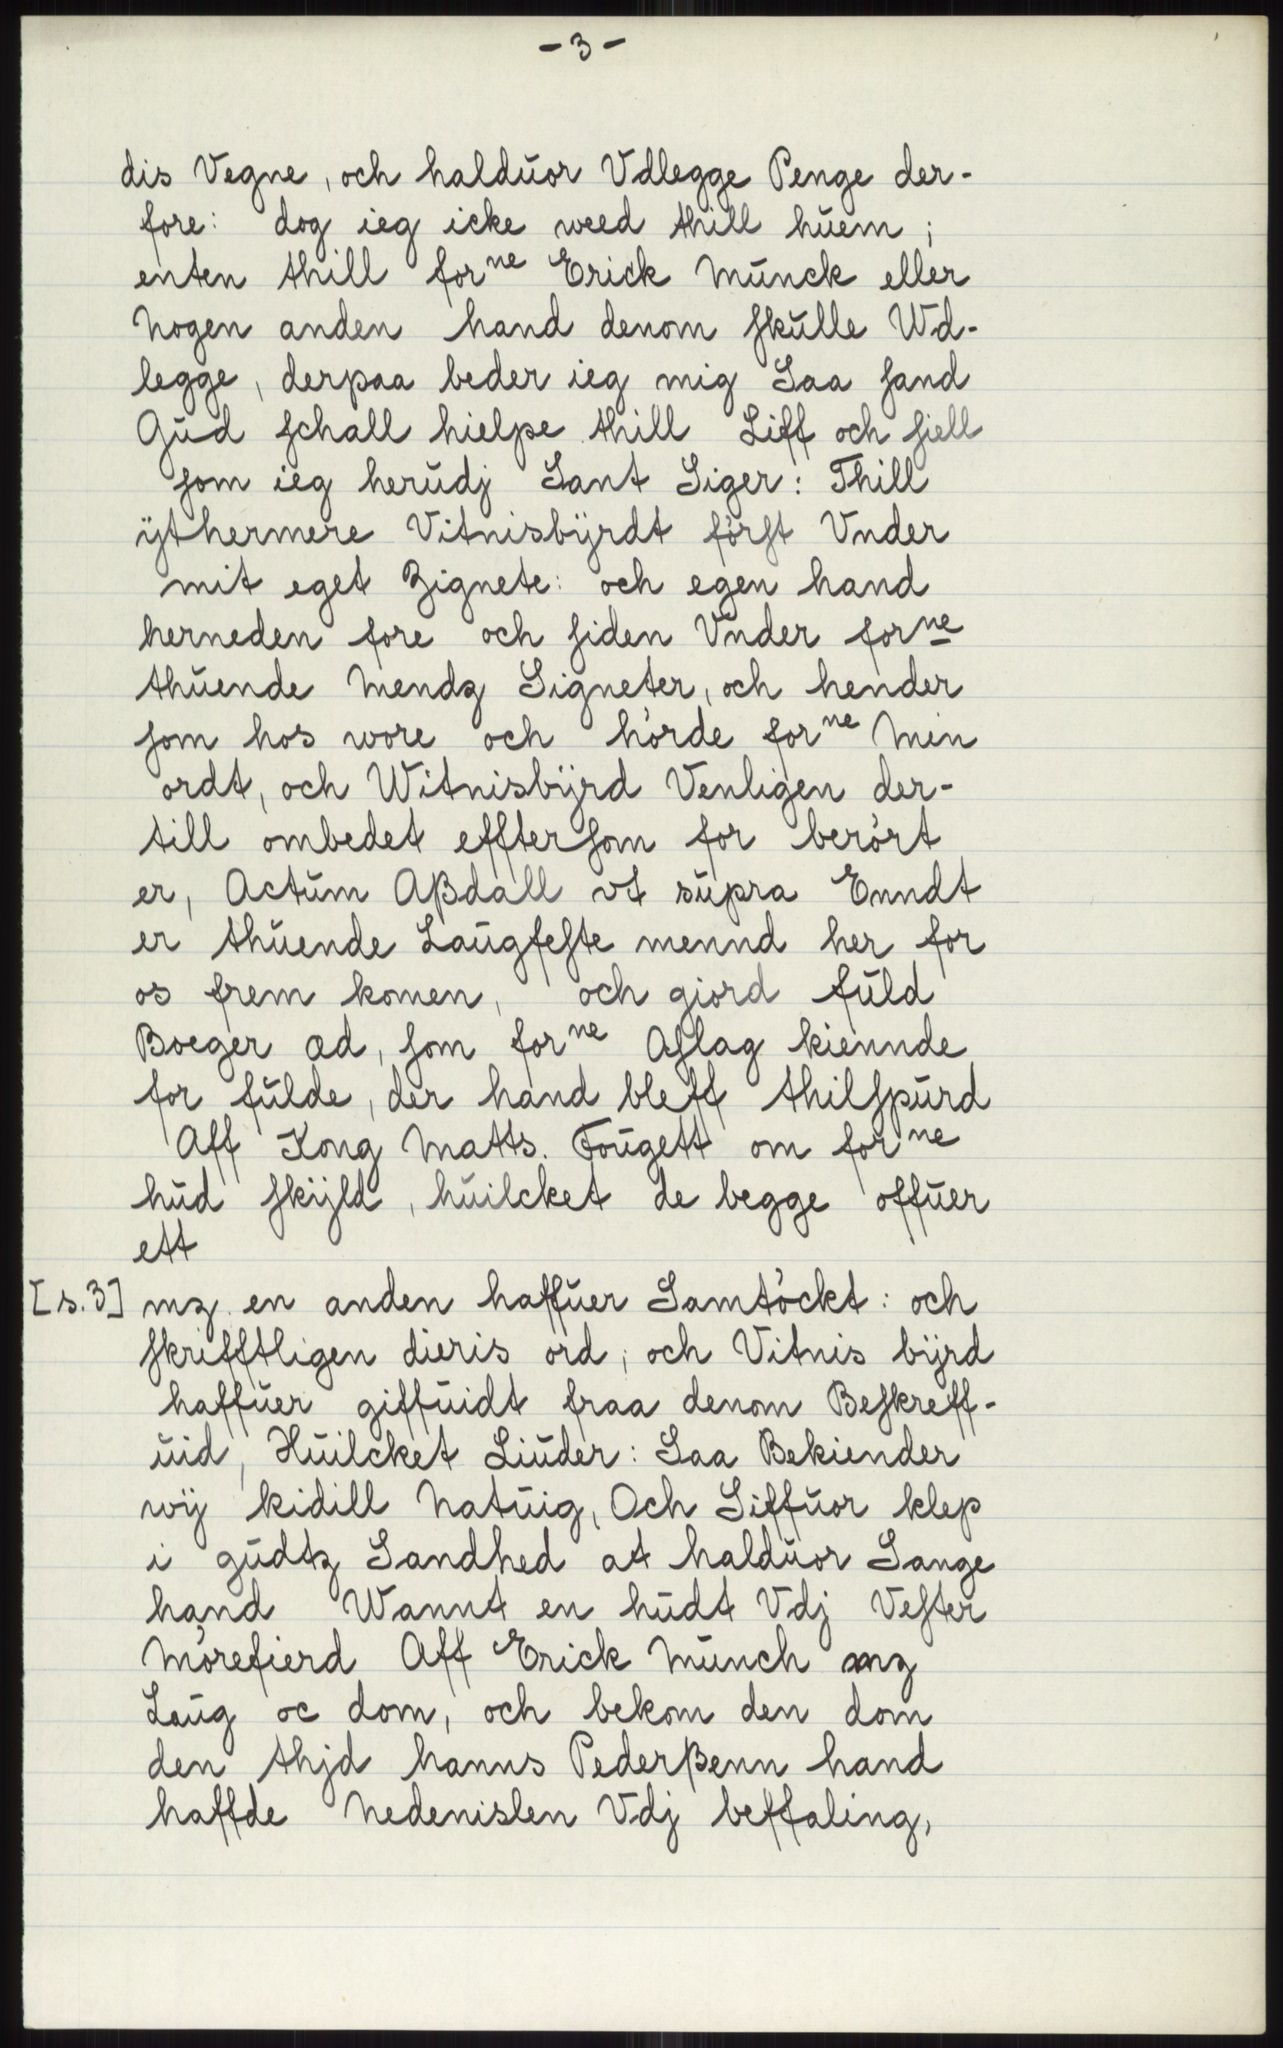 - 3 -
dis Vegne, och halduor Vdlegge Penge der-
fore: dog ieg icke weed thill huem;
enten thill forne Erick Munck eller
Nogen anden hand denom skulle Wd-
legge, derpaa beder ieg mig Saa sand
Gud schall hielpe thill Liff och siell
som ieg herudj Sant Siger: Thill
ÿthermere Vitnisbÿrdt först Vnder
mit eget Zignete: och egen hand
herneden fore och siden Vnder forne
thuende Mendz Signeter, och hender
som hos wore och hörde forne Min
ordt, och Witnisbÿrd Venligen der-
till ombedet efftersom for berört
er, Actum Aßdall vt supra Enndt
er thuende Laugfeste mennd her for
os frem komen, och giord fuld
Boeger æd, som forne Aslag kiennde
for fulde, der hand bleff thilspurd
Aff Kong Matts. Fougett om forne
hud skÿld, huilcket de begge offuer
ett
[s.3] mz en anden haffuer Samtöckt: och
skrifftligen dieris ord, och Vitnis bÿrd
haffuer giffuidt fraa denom Beskreff-
uid, Huilcket Liuder: Saa Bekiender
wÿ kidill Natuig, Och Siffuor klep
i gudtz Sandhed at halduor Sange
hand Wannt en hudt Vdj Vester
Mörefierd Aff Erick Munch mz
Laug oc dom, och bekom den dom
den thjd hanns Pederßenn hand
haffde Nedenislen Vdj beffaling,